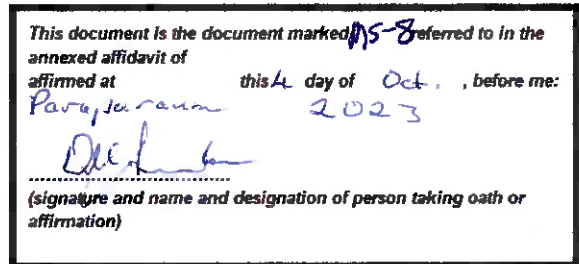 This document is the document marked MS-8 referred to in the
annexed affidavit of
affirmed at this 4 day of Oct. , before me:
Paraparaumu 2023
(signature and name and designation of person taking oath or
affirmation)